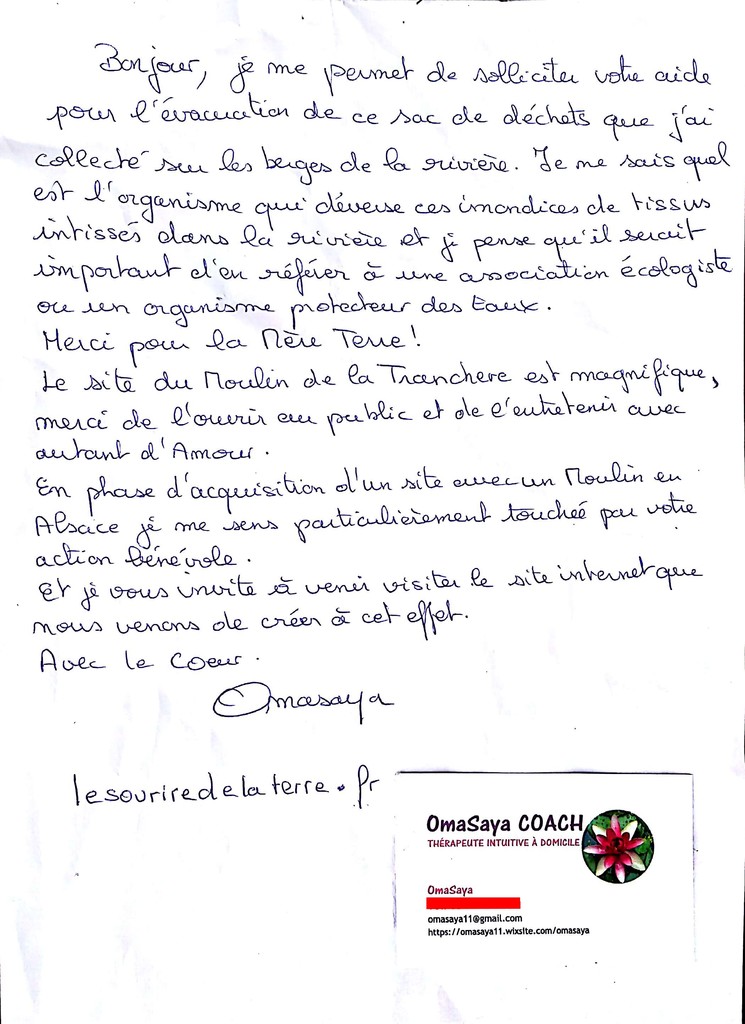 Bonjour, je me permet de solliciter votre aide
pour l'évacuation de ce sac de déchets que j'ai
collecté sur les berges de la rivière. Je me sais quel
est l'organisme qui déverse ces imondices de tissus
intissés dans la rivière et je pense qu'il serait
important d'en référer à une association écologiste
ou un organisme protecteur des Eaux.
Merci pour la Mère Terre!
Le site du Moulin de la Tranchere est magnifique,
merci de l'ouvrir au public et de l'entretenir avec
autant d'Amour.
En phase d'acquisition d'un site avec un Moulin en
Alsace je me sens particulièrement touchée par votre
action bénévole.
Et je vous invite à venir visiter le site internet que
nous venons de créer à cet effet.
Avec le Coeur.
Omasaya
lesouriredelaterre.fr
OmaSaya COACH
THÉRAPEUTE INTUITIVE À DOMICILE
OmaSaya
omasaya11@gmail.com
https://omasaya11.wixsite.com/omasaya